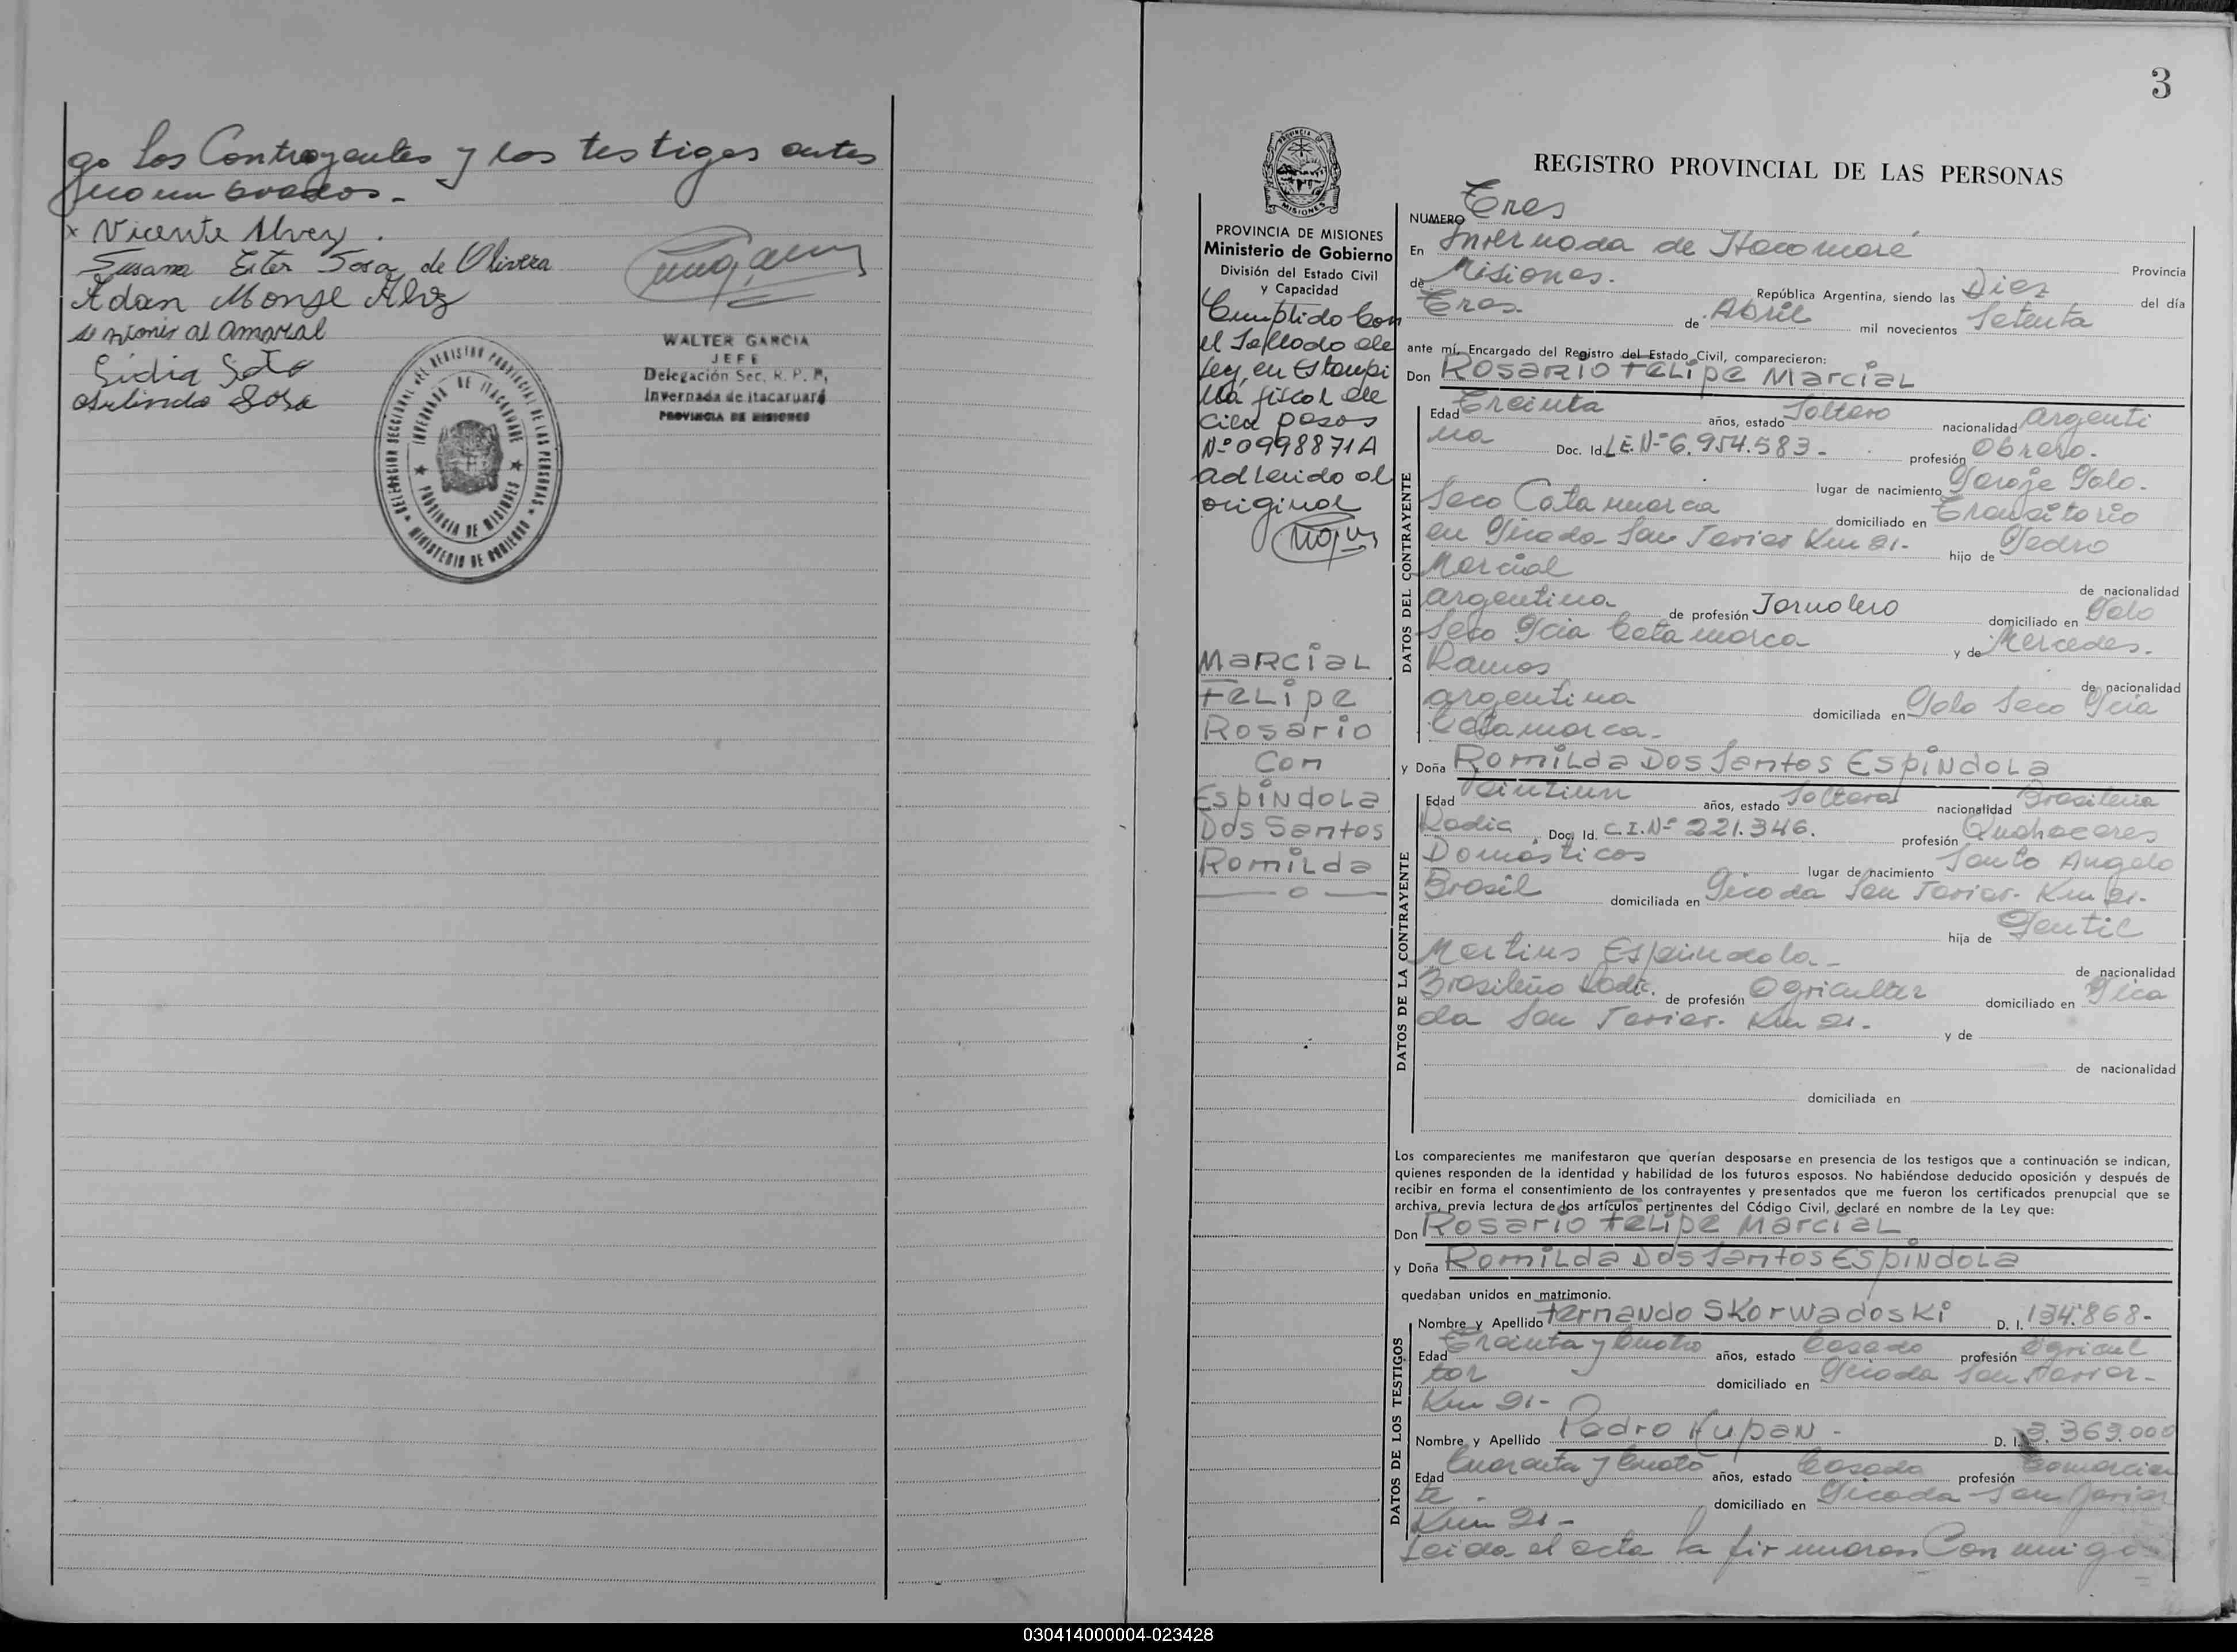 go los Contrayentes y los testigos antes
nombrados.-
x Vicente Alvez.
Susana Ester Sosa de Olivera
Adan Monge Alvez
Lidia Soto
Arlindo Sosa
WALTER GARCIA
JEFE
Delegación Sec. R. P. P.
Invernada de Itacaruaré
PROVINCIA DE MISIONES
DELEGACION SECCIONAL DEL REGISTRO PROVINCIAL DE LAS PERSONAS
INVERNADA DE ITACARUARE
PROVINCIA DE MISIONES
MINISTERIO DE GOBIERNO
3
MISIONES
PROVINCIA DE MISIONES
Ministerio de Gobierno
División del Estado Civil
y Capacidad
Cumplido Con
el Sellado de
ley, en Estampi
lla fiscal de
cien pesos
Nº 0998871A
adherido al
original
MARCIAL
FELIPE
Rosario
Con
ESPINDOLA
Dos Santos
Romilda
REGISTRO PROVINCIAL DE LAS PERSONAS
NUMERO Tres
En Invernada de Itacaruaré Provincia
de Misiones. República Argentina, siendo las Diez del día
Tres. de Abril mil novecientos Setenta
ante mí, Encargado del Registro del Estado Civil, comparecieron:
Don ROSARIO FELIPE MARCIAL
DATOS DEL CONTRAYENTE
Edad Treinta años, estado Soltero nacionalidad argenti
na Doc. Id. L.E. Nº 6.954.583.- profesión Obrero.
lugar de nacimiento Paraje Palo.
Seco Catamarca domiciliado en Transitorio
en Picada San Javier Km 21.- hijo de Pedro
Marcial de nacionalidad
argentina de profesión Jornalero domiciliado en Palo
Seco Pcia Catamarca y de Mercedes.
Ramos de nacionalidad
argentina domiciliada en Palo Seco Pcia
Catamarca.-
y Doña Romilda Dos Santos Espindola
DATOS DE LA CONTRAYENTE
Edad Veintiun años, estado Soltera nacionalidad Brasileña
Radic Doc. Id. C.I. Nº 221.346. profesión Quehaceres
Domésticos lugar de nacimiento Santo Angelo
Brasil domiciliada en Picada San Javier. Km 21.-
hija de Gentil
Martins Espindola.- de nacionalidad
Brasileño Radic. de profesión Agricultor domiciliado en Pica
da San Javier. Km 21.- y de
de nacionalidad
domiciliada en
Los comparecientes me manifestaron que querían desposarse en presencia de los testigos que a continuación se indican,
quienes responden de la identidad y habilidad de los futuros esposos. No habiéndose deducido oposición y después de
recibir en forma el consentimiento de los contrayentes y presentados que me fueron los certificados prenupcial que se
archiva, previa lectura de los artículos pertinentes del Código Civil, declaré en nombre de la Ley que:
Don Rosario Felipe Marcial
y Doña Romilda Dos Santos Espindola
quedaban unidos en matrimonio.
DATOS DE LOS TESTIGOS
Nombre y Apellido Fernando Skorwadoski D. I. 134.868-
Edad Treinta y Cuatro años, estado Casado profesión Agricul
tor domiciliado en Picada San Javier-
Km 21-
Nombre y Apellido Pedro Kupan - D. I. 3.363.000
Edad Cuarenta y Cuatro años, estado Casado profesión Comercian
te. domiciliado en Picada San Javier
Km 21-
Leida el acta la firmaron Con mi go
030414000004-023428